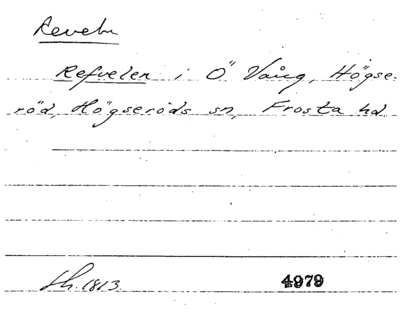 Reveln
Refvelen i Ö Vång, Högse-
röd, Högseröds sn, Frosta hd
Sh. 1813. 4979